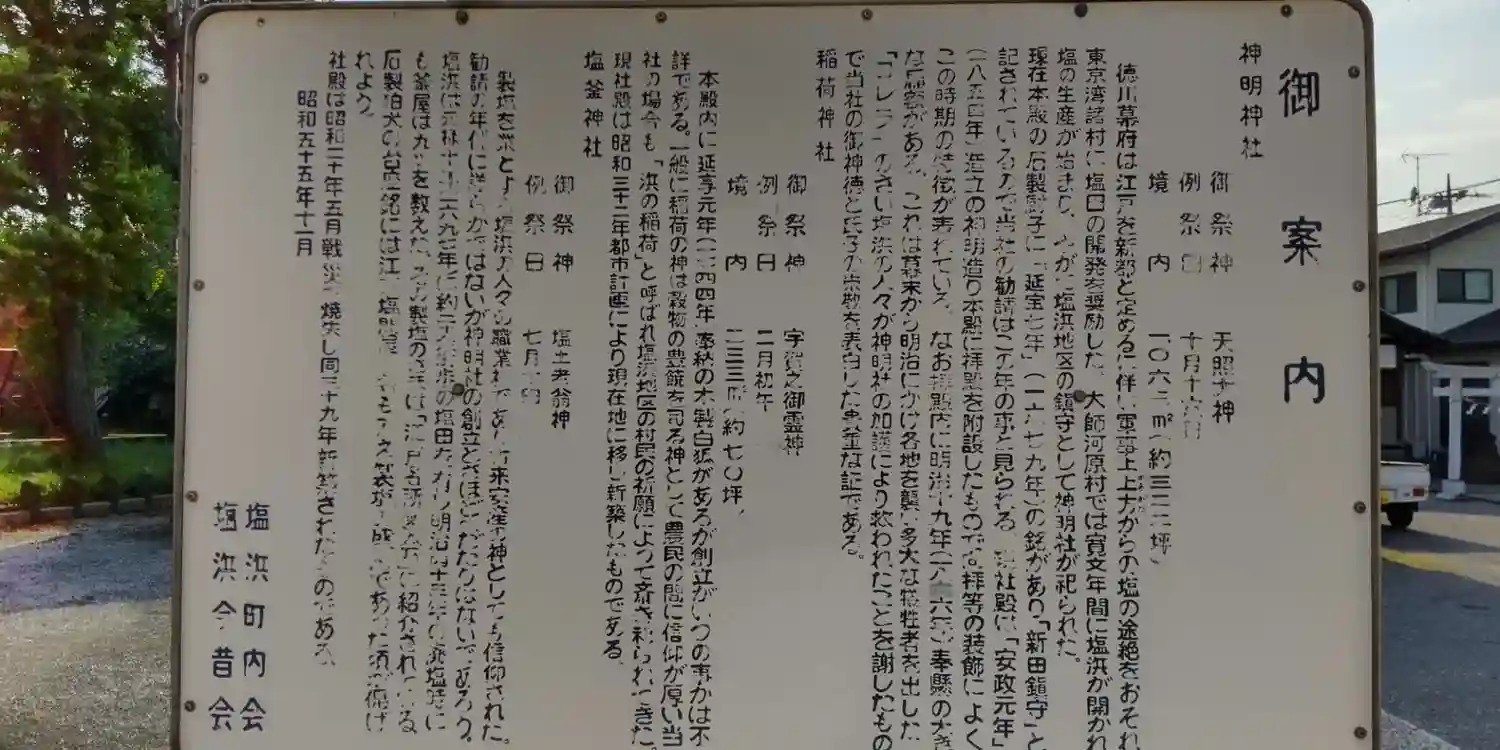 御案内
神明神社
御祭神 天照大神
例祭日 十月十六日
境内 一〇六二㎡(約三二二坪)
徳川幕府は江戸を新都と定めるに伴い軍事上上方からの塩の途絶をおそれ
東京湾諸村に塩田の開発を奨励した。大師河原村では寛文年間に塩浜が開かれ
塩の生産が始まり、やがて塩浜地区の鎮守として神明社が祀られた。
現在本殿の石製厨子に「延宝七年」(一六七九年)の銘があり「新田鎮守」と
記されているので当社の勧請はこの年の事と見られる。現社殿は「安政元年」
(一八五四年)造立の神明造り本殿に拝殿を附設したもので向拝等の装飾によく
この時期の特徴が表れている。なお拝殿内に明治十九年(一八八六年)奉懸の大き
な扁額がある。これは幕末から明治にかけ各地を襲い多大な犠牲者を出した
「コレラ」のさい塩浜の人々が神明社の加護により救われたことを謝したもの
で当社の御神徳と氏子の崇敬を表白した貴重な証である。
稲荷神社
御祭神 宇賀之御霊神
例祭日 二月初午
境内 二三三㎡(約七〇坪)
本殿内に延享元年(一七四四年)奉納の木製白狐があるが創立がいつの事かは不
詳である。一般に稲荷の神は穀物の豊饒を司る神として農民の間に信仰が厚い当
社の場合も「浜の稲荷」と呼ばれ塩浜地区の村民の祈願によって斎き祀られてきた。
現社殿は昭和三十二年都市計画により現在地に移し新築したものである。
塩釜神社
御祭神 塩土老翁神
例祭日 七月十四日
製塩を業とする塩浜の人々の職業神であり古来安産の神としても信仰された。
勧請の年代は詳らかではないが神明社の創立とさほどへだたりはないであろう。
塩浜は元禄十年(一六九七年)に約二十
も釜屋は九を数えた。その製塩の
石製狛犬の台座銘には江戸塩
れよう。
社殿は昭和二十年五月戦災で焼失し同二十九年新築されたものである。
昭和五十五年十一月
塩浜町内会
塩浜今昔会